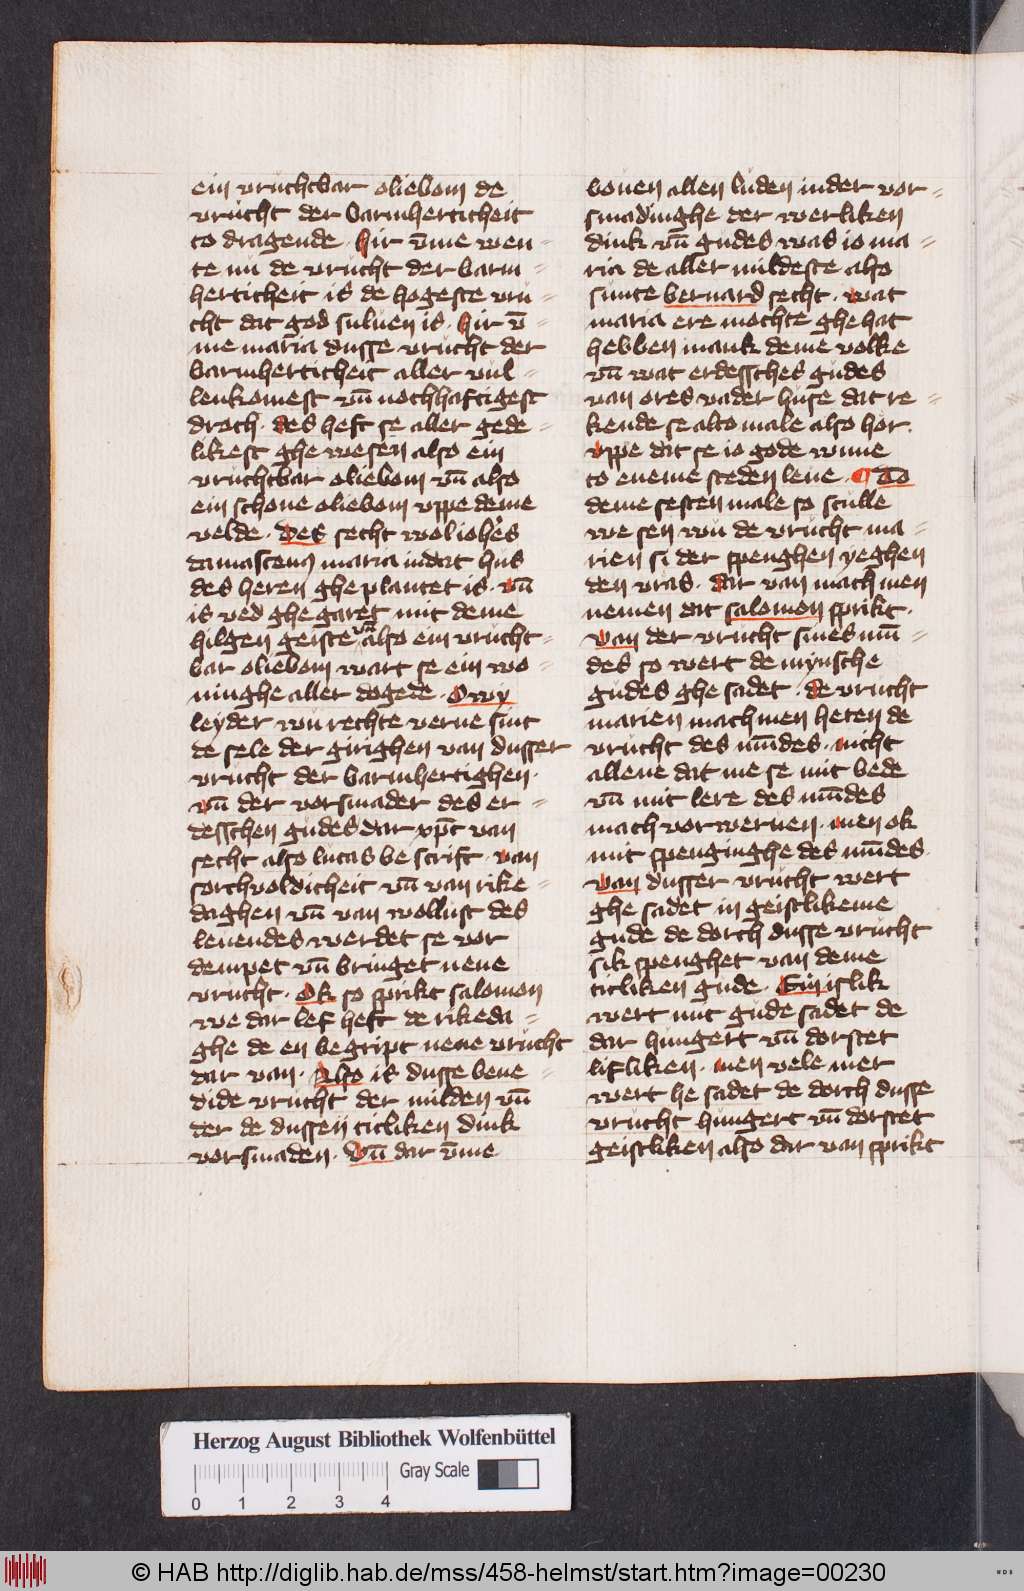 ein vruchtbar oliebom de
vrucht der barmherticheit
to dragende. hir v̄me wen=
te nu de vrucht der barm=
herticheit is de hogeste vru=
cht dat god suluen is. hir v̄=
me maria dusse vrucht der
barmherticheit aller vul=
lenkomest vn̄ nochhaftigest
droch. des heft se aller gede=
likest ghe wesen also ein
vruchtbar oliebom vn̄ also
ein schone oliebom vppe deme
velde. Des secht wol
damascenꝰ maria in dat hus
des heren ghe plantet is. vn̄
is ved ghe garet mit deme
hilgen geiste vn̄ also ein vrucht=
bar oliebom wart se ein wo=
ninghe aller dogede. Owy
leyder wu rechte verne sint
de sele der girighen van dusser
vrucht der barmhertighen.
vn̄ der vorsmader des er=
desschen gudes dar xp̄c van
secht also lucas be scrift. van
sorchvoldicheit vn̄ van rike=
daghen vn̄ van wollust des
leuendes werdet se vor
dempet vn̄ bringet nene
vrucht. Ok so sprikt salomon
we dar lef heft de rikeda=
ghe de en begript nene vrucht
dar van. Also is dusse bene=
dide vrucht der milden vn̄
der de dussen titliken dink
vorsmaden. Vn̄ dar v̄me
bouen allen luden in der vor=
smadinghe der werliken
dink vn̄ gudes was io ma=
ria de aller mildeste also
sunte bernard secht. wat
maria ere mochte ghe hat
hebben mank deme volke
vn̄ wat erdessches gudes
van ores vader huse dat re=
kende se alto male also hor.
vppe dat se io gode wnne
to eneme steden leue. ¶ To
deme sesten male so sculle
we sen wu de vrucht ma=
rien si der spenghen yeghen
den vras. dar van mach men
nemen dat salomon sprikt.
van der vrucht sines mū=
des so wert de mynsche
gudes ghe sadet. de vrucht
marien mach men heten de
vrucht des mūdes. nicht
allene dat me se mit bede
vn̄ mit lere des mūdes
mach vorweruen. men ok
mit spenginghe des mūdes.
van dusser vrucht wert
ghe sadet in geistlikeme
gude de dorch dusse vrucht
sik spenghet van deme
titliken gude. Ein islik
wert mit gude sadet de
dar hungert vn̄ dorstet
lifliken. men vele mer
wert he sadet de dorch dusse
vrucht hungert vn̄ dorstet
geistliken also dar van sprikt
Herzog August Bibliothek Wolfenbüttel
Gray Scale
0 1 2 3 4
© HAB http://diglib.hab.de/mss/458-helmst/start.htm?image=00230